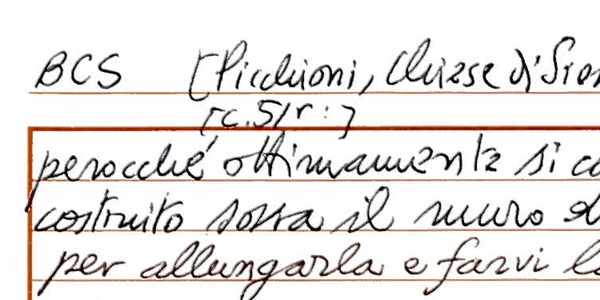 BCS [Picchioni, Chiese d'Sien
[c.51r:]
perocché ottimamente si co
costruito sovra il muro d
per allungarla e farvi la